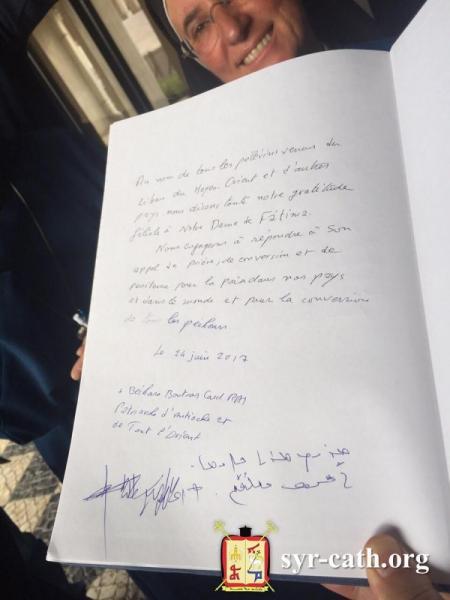 Au nom de tous les pèlerins venus du
Liban du Moyen Orient et d'autres
pays nous disons toute notre gratitude
filiale à Notre Dame de Fátima.
Nous engageons à répondre à Son
appel de prière, de conversion et de
penitence pour la paix dans nos pays
et dans le monde et pour la conversion
de tous les pecheurs
Le 24 juin 2017
+ Béchara Boutros Card. Raï
Patriarche d'Antioche et
de Tout l'Orient
syr-cath.org